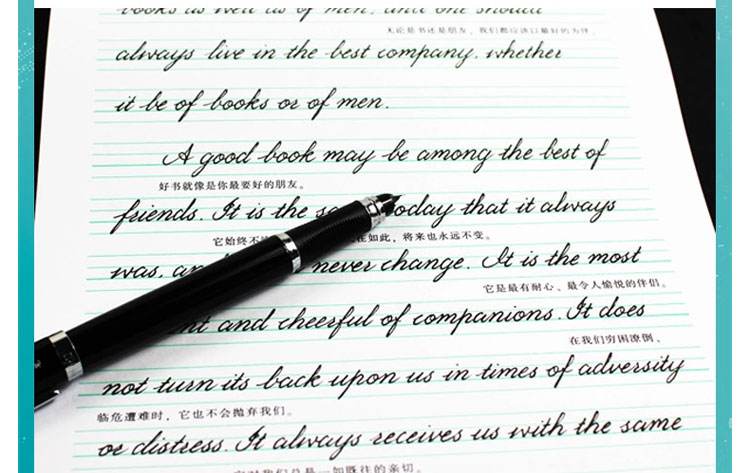 books as well as of men, and one should
无论是书还是朋友，我们都应该以最好的为伴
always live in the best company, whether
it be of books or of men.
A good book may be among the best of
好书就像是你最要好的朋友。
friends. It is the today that it always
它始终不 在如此，将来也永远不变。
was, never change. It is the most
它是最有耐心、最令人愉悦的伴侣。
and cheerful of companions. It does
在我们穷困潦倒、
not turn its back upon us in times of adversity
临危遭难时，它也不会抛弃我们。
or distress. It always receives us with the same
它对我们总是一如既往的亲切。